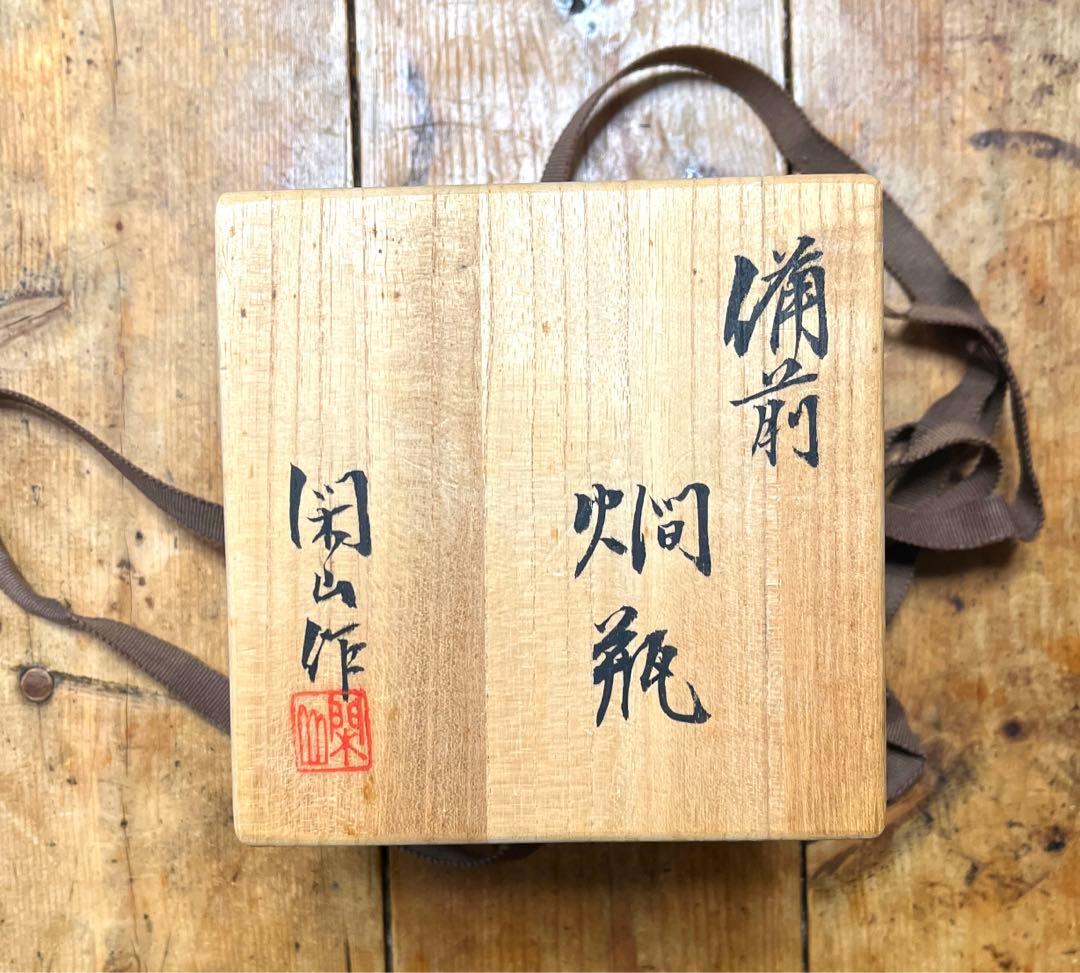 備前
燗瓶
閑山作
閑山